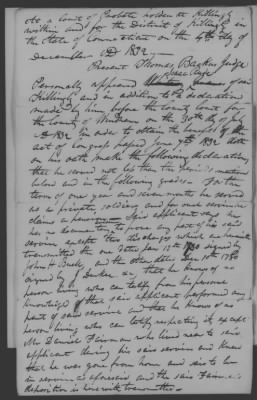 At a Court of Probate holden at Killingly
within and for the District of Killingly in
the State of Connecticut on the 4th day of
December AD 1832.
Present Thomas Backus Judge
Isaac Page
Personally appeared of said
Killingly and in addition to the declaration
made by him before the County Court for
the County of Windham on the 30th of July
AD 1832 in order to obtain the benefit of the
act of Congress passed June 7th 1832 doth
on his oath make the following declaration,
that he served not less than the periods mentioned
below and in the following grades. For the
term of one year and seven months he served
as a private soldier and for such service he
claims a pension. Said applicant says he
has no documentary to prove any part of his said
service except two discharges which are herewith
transmitted the one dated Jan 13th 1780 signed by
John H Buell and the other dated Dec 10th 1780
signed by J Durkee that he knows of no
person living who can testify from his personal
knowledge that said applicant performed any
part of said service and that he knows of no
person living who can testify respecting it except
Mr Daniel who lived near to said
applicant during his said service and knew
that he was gone from home and said to be
in service as aforesaid and the said
deposition is herewith transmitted.